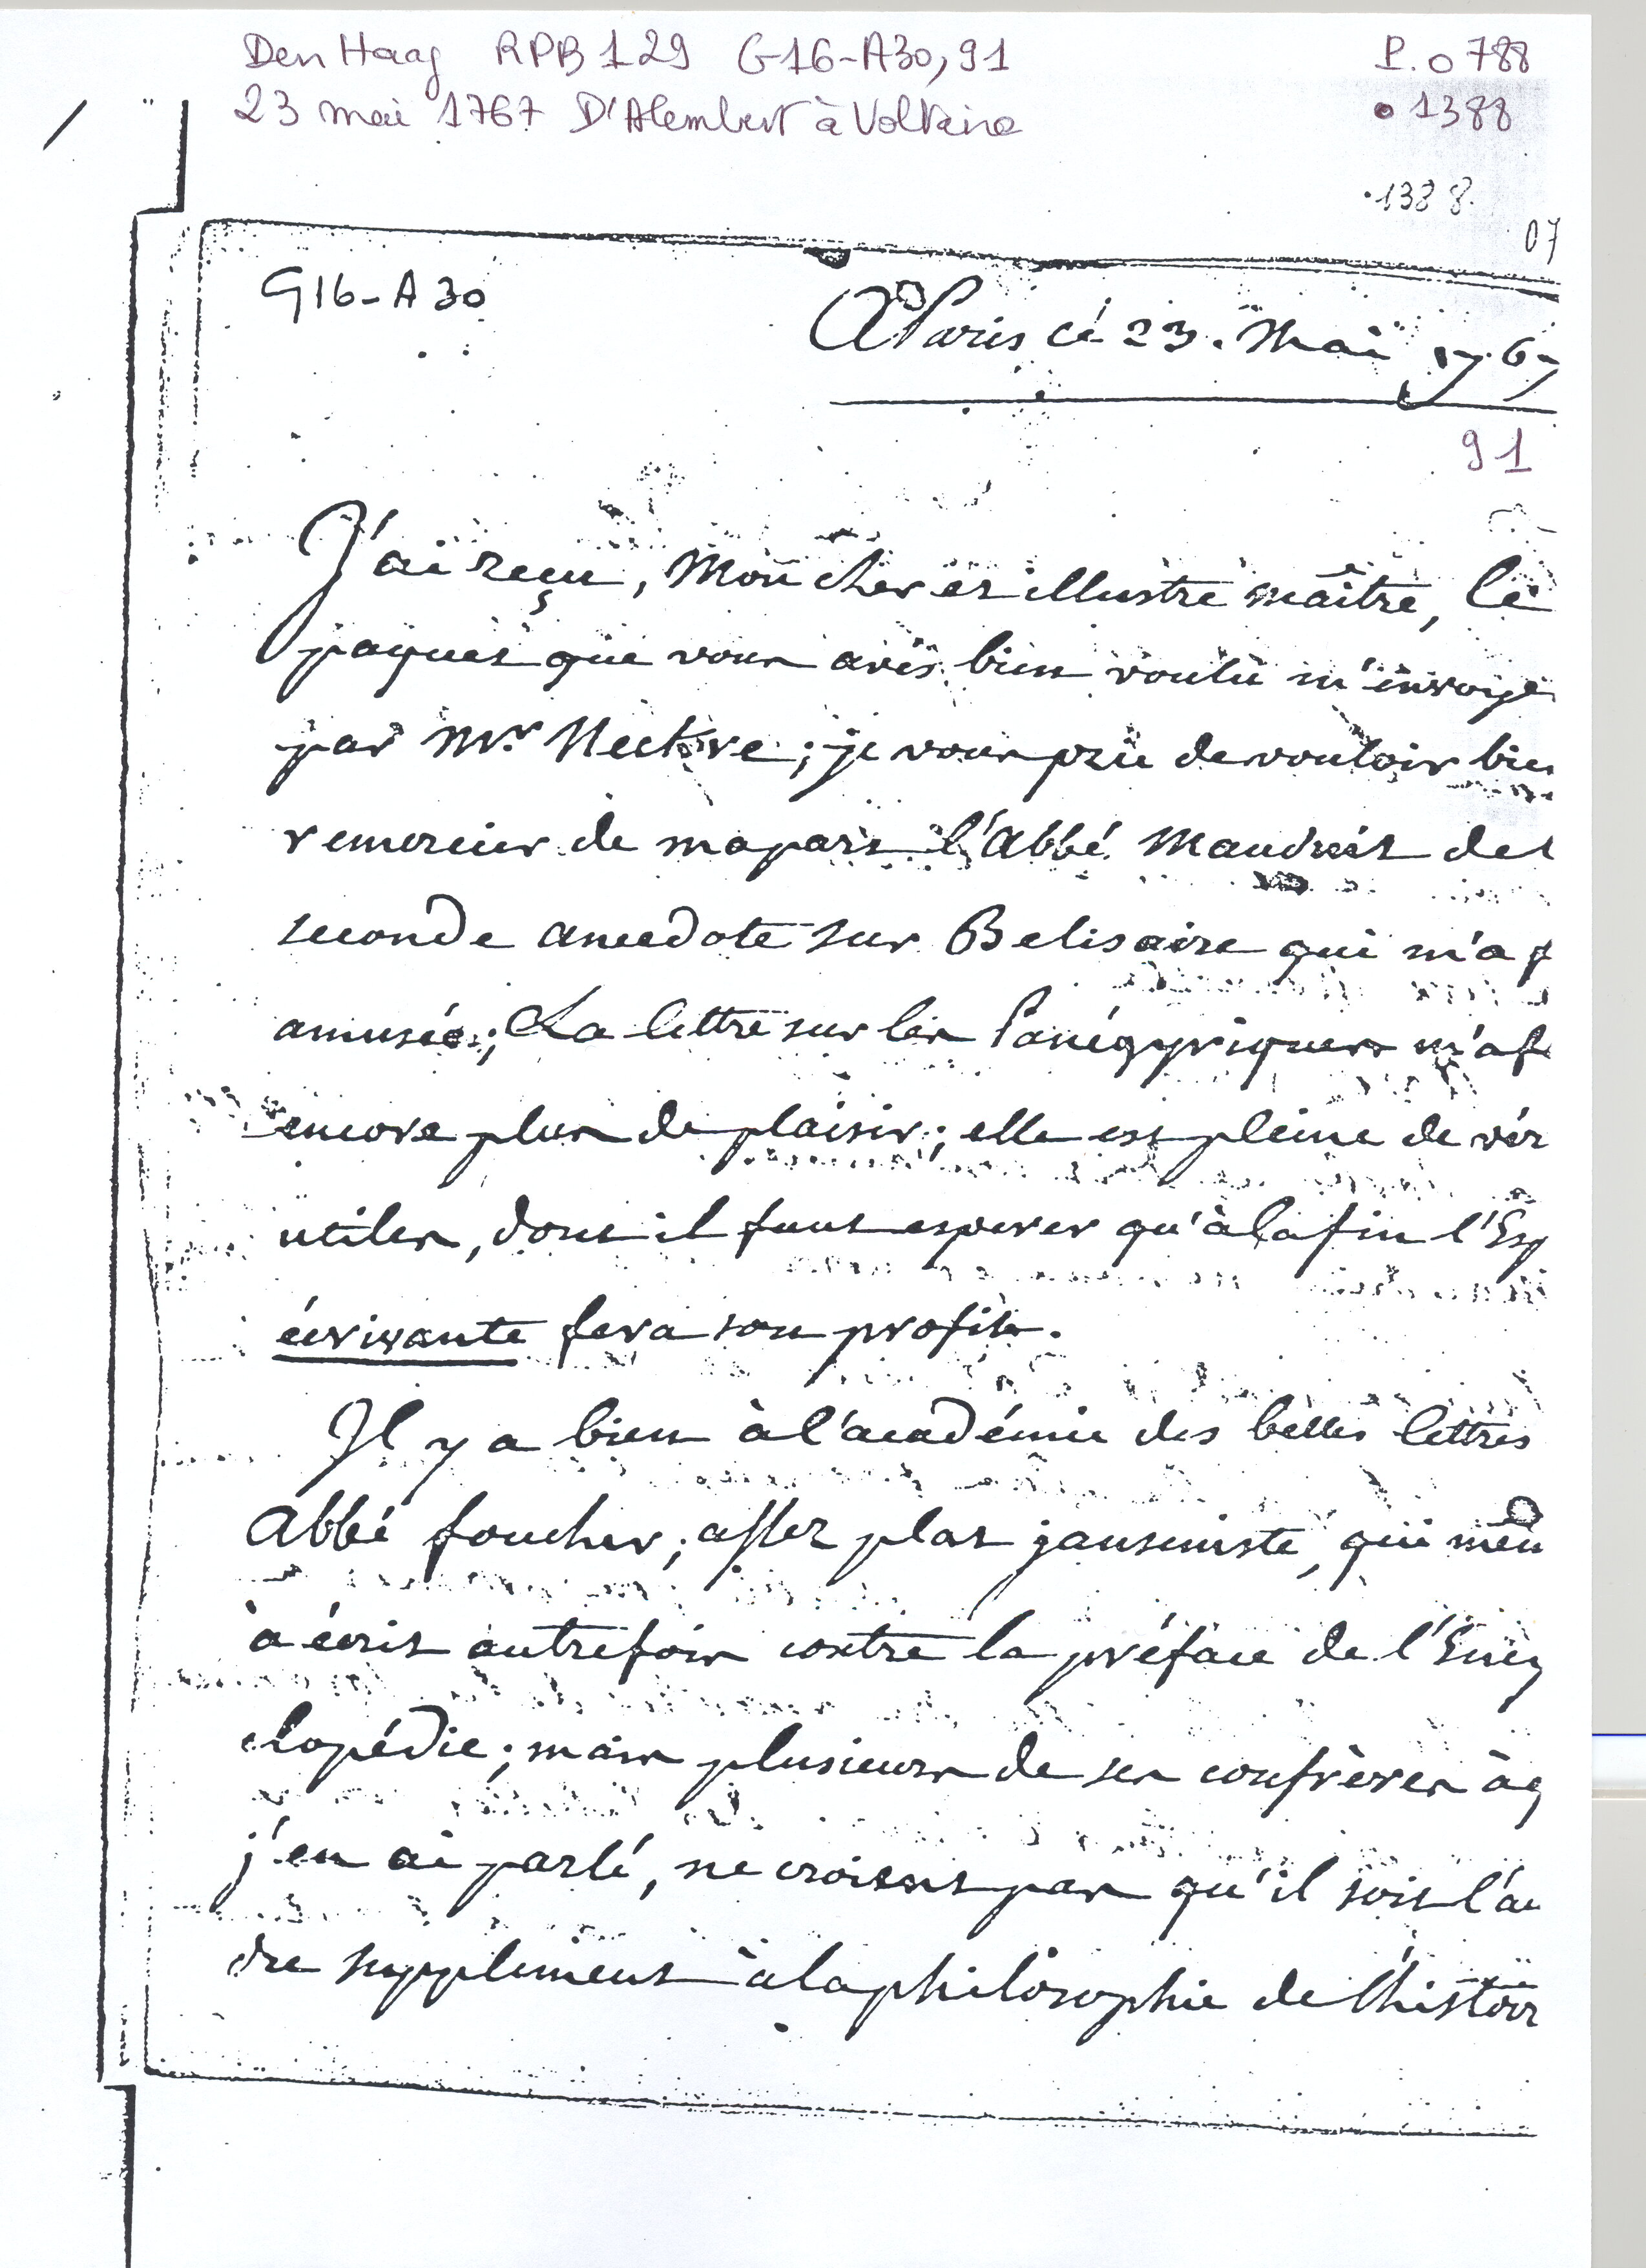 Den Haag RPB 129 G16-A30, 91 P. 0788
23 mai 1767 D'Alembert à Voltaire 1388
1388
07
G16-A30
A Paris cé 23. Mai 1767
91
J'ai reçu, Mon cher et illustre maître, le
paquet que vous avés bien voulu m'envoye
par Mr. Neckre; je vous prie de vouloir bien
remercier de ma part l'Abbé Mauduit de s
seconde anecdote sur Belisaire qui m'a f
amusée; La lettre sur les Panégyriques m'a f
encore plus de plaisir; elle est pleine de vér
utiles, dont il faut esperer qu'à la fin l'Esp
écrivante fera son profit.
Il y a bien à l'académie des belles lettres
Abbé foucher; assez plat janseniste, qui mêm
à écrit autrefois contre la préface de l'Ency
clopédie; mais plusieurs de ses confrères à q
j'en ai parlé, ne croient pas qu'il soit l'au
du supplément à la philosophie de l'histoir